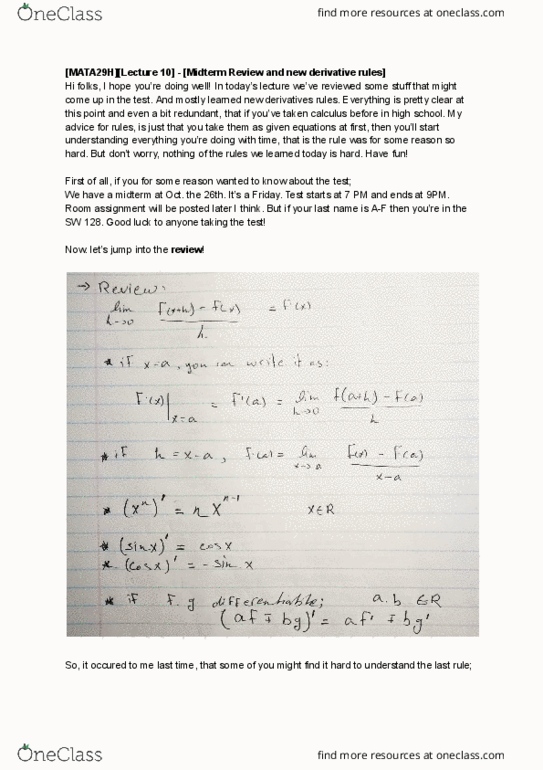 OneClass
find more resources at oneclass.com
[MATA29H][Lecture 10] - [Midterm Review and new derivative rules]
Hi folks, I hope you're doing well! In today's lecture we've reviewed some stuff that might
come up in the test. And mostly learned new derivatives rules. Everything is pretty clear at
this point and even a bit redundant, that if you've taken calculus before in high school. My
advice for rules, is just that you take them as given equations at first, then you'll start
understanding everything you're doing with time, that is the rule was for some reason so
hard. But don't worry, nothing of the rules we learned today is hard. Have fun!
First of all, if you for some reason wanted to know about the test;
We have a midterm at Oct. the 26th. It's a Friday. Test starts at 7 PM and ends at 9PM.
Room assignment will be posted later I think. But if your last name is A-F then you're in the
SW 128. Good luck to anyone taking the test!
Now. let's jump into the review!
→ Review:
lim h→0 F(x+h) - F(x) / h = F'(x)
* if x=a, you can write it as:
F'(x)|x=a = F'(a) = lim h→0 f(a+h) - F(a) / h
* if h = x-a, F'(a) = lim x→a F(x) - F(a) / x-a
* (xⁿ)' = n xⁿ⁻¹ x∈R
* (sinx)' = cosx
* (cosx)' = - sin x
* if F.g differentiable; a.b ∈R
(af ∓ bg)' = af' ∓ bg'
So, it occured to me last time, that some of you might find it hard to understand the last rule;
OneClass
find more resources at oneclass.com